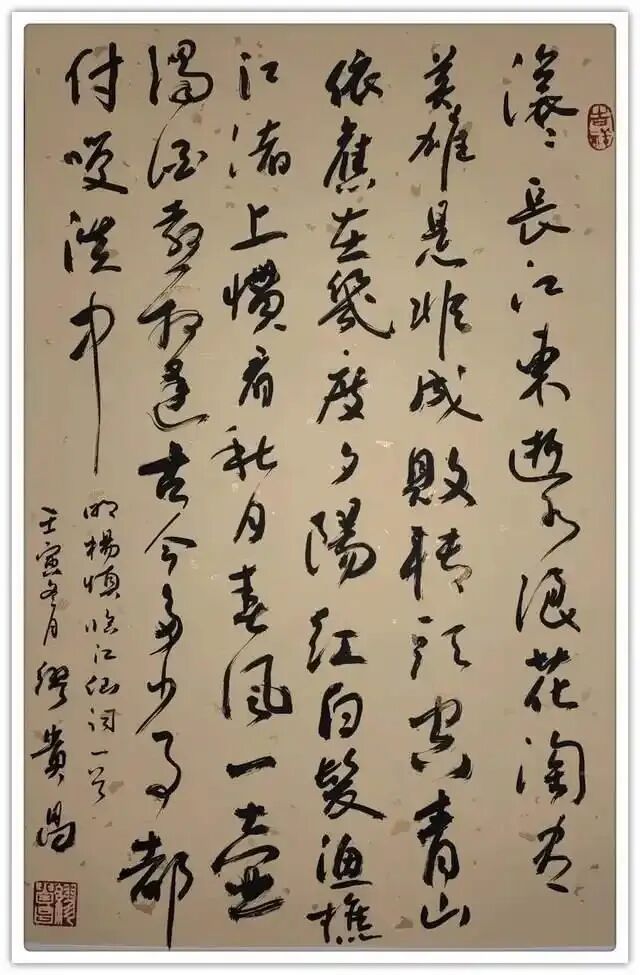 吉祥
滚々长江东逝水浪花淘尽
英雄是非成败转头空青山
依旧在几度夕阳红白发渔樵
江渚上惯看秋月春风一壶
浊酒喜相逢古今多少事都
付笑谈中
明杨慎临江仙词一首
壬寅冬月缪贵昌